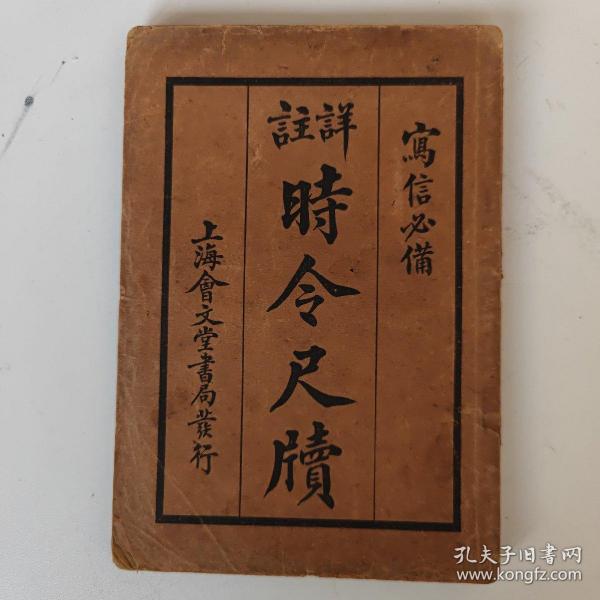 寫信必備
詳註
時令尺牘
上海會文堂書局發行
孔夫子旧书网
www.kongfz.com